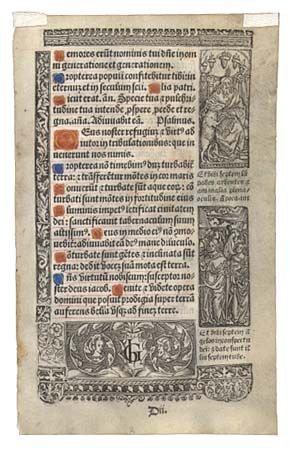 Memores erūt nominis tui dñe: in om
ni generatione et generationem.
Propterea populi confitebūtur tibi: in
eternū: et in seculum scli. Glia patri.
Sicut erat. añ. Specie tua et pulchri
tudine tua intende pspere pcede et re
gna. añ. Adiuvabit eā. Psalmus.
Deus noster refugiū et virt9: ad
iutor in tribulationibus: que in
venerunt nos nimis.
Propterea nō timebim9 dū turbabit
terra: et trāsferent mōtes in cor maris
Sonuerūt et turbate sūt aque eoꝝ: cō
turbati sunt mōtes in fortitudine eius
Fluminis impet9 letificat civitatem
dei: sanctificavit tabernaculum suum
altissim9. Deus in medio ei9 nō cōmo
vebit: adiuvabit eā de9 mane diluculo.
Cōturbate sūt gētes et inclinata sūt
regna: dedit vocē suā mota est terra.
Dñs virtutū nobiscum: susceptor no
ster deus iacob. Venite et videte opera
domini que posuit prodigia super terrā
auferens bella vsqȝ ad finē terre.
Et vidi septem
aurea plena
Et vidi septem ā
gelos in conspectu
dei: et date sunt il
lis septem tube.
D ii.